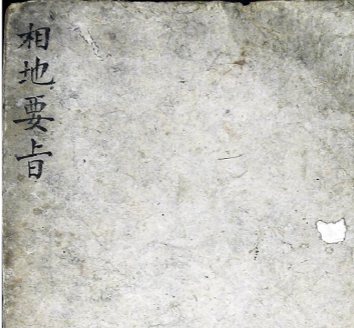 相地要旨